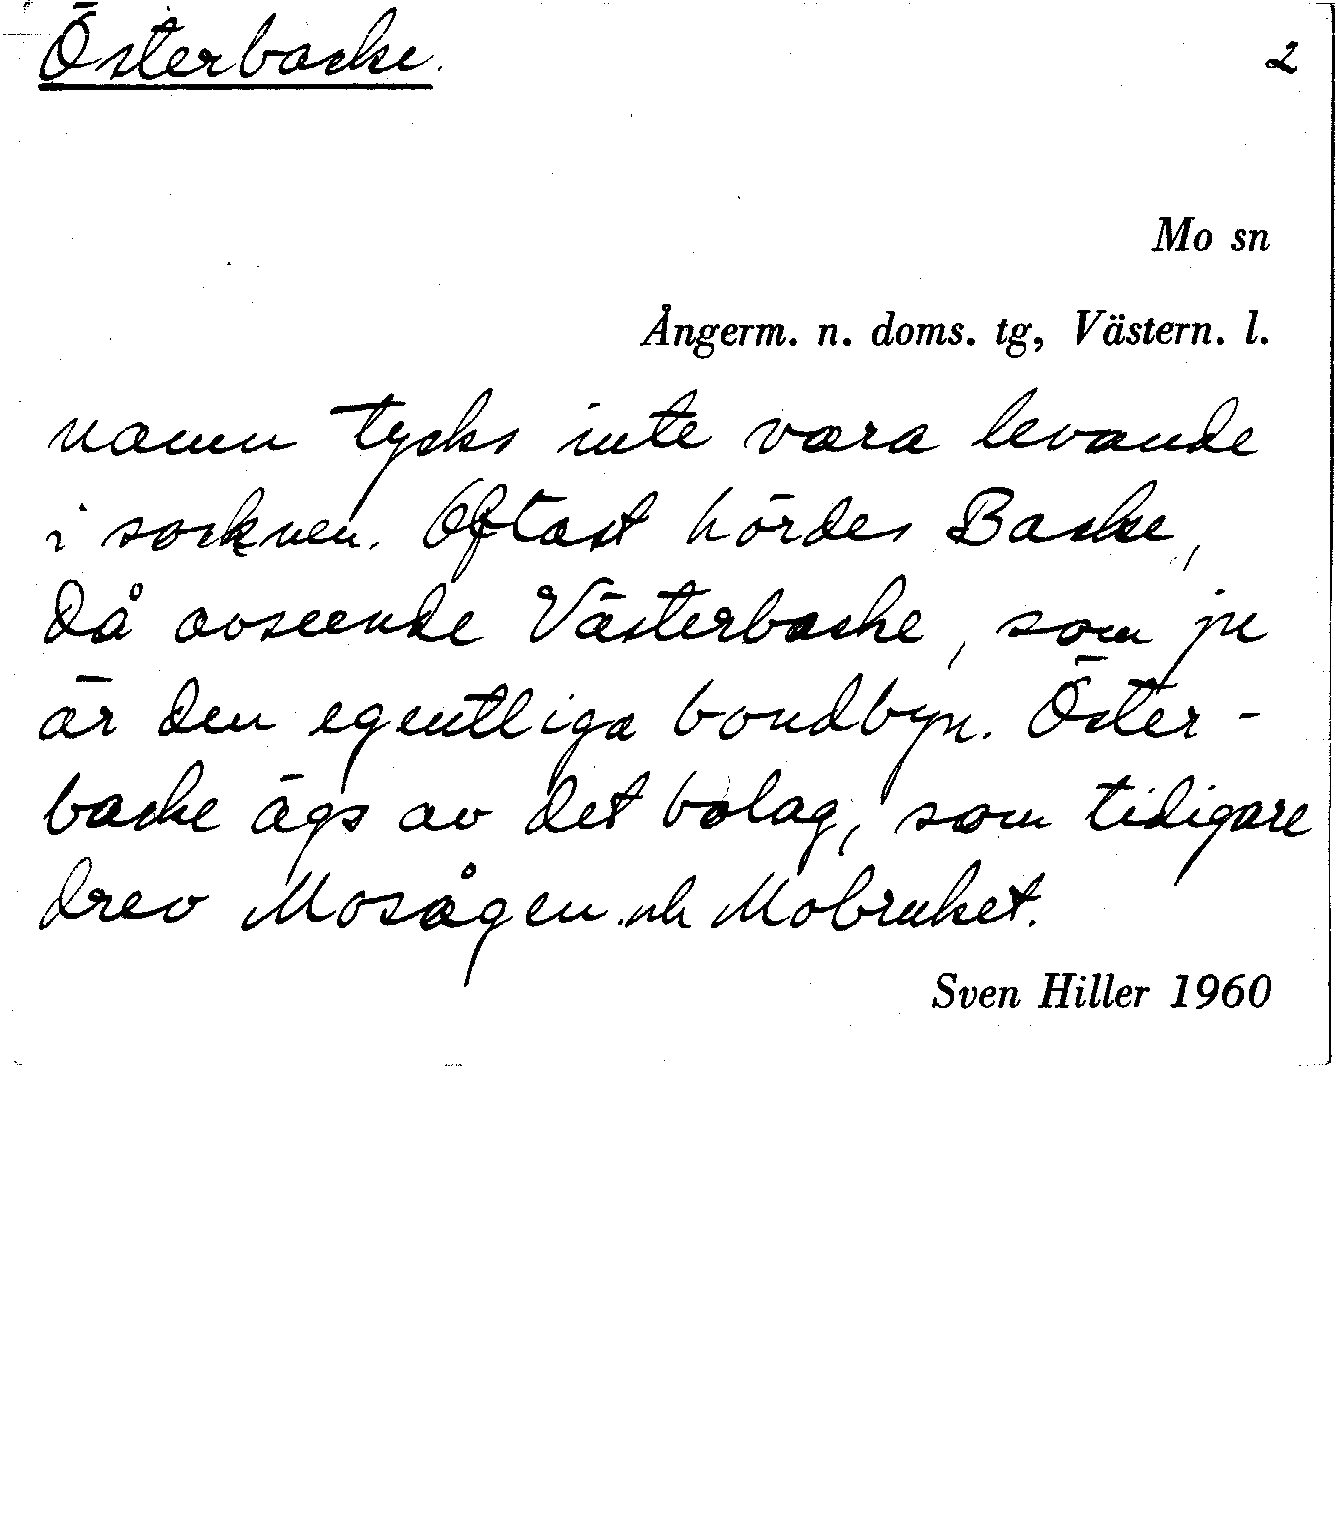 Österbacke.
2
Mo sn
Ångerm. n. doms. tg, Västern. l.
namn tycks inte vara levande
i socknen. Oftast hördes Backe,
då avseende Västerbacke, som ju
är den egentliga bondbyn. Öster-
backe ägs av det bolag, som tidigare
drev Mosågen och Mobruket.
Sven Hiller 1960